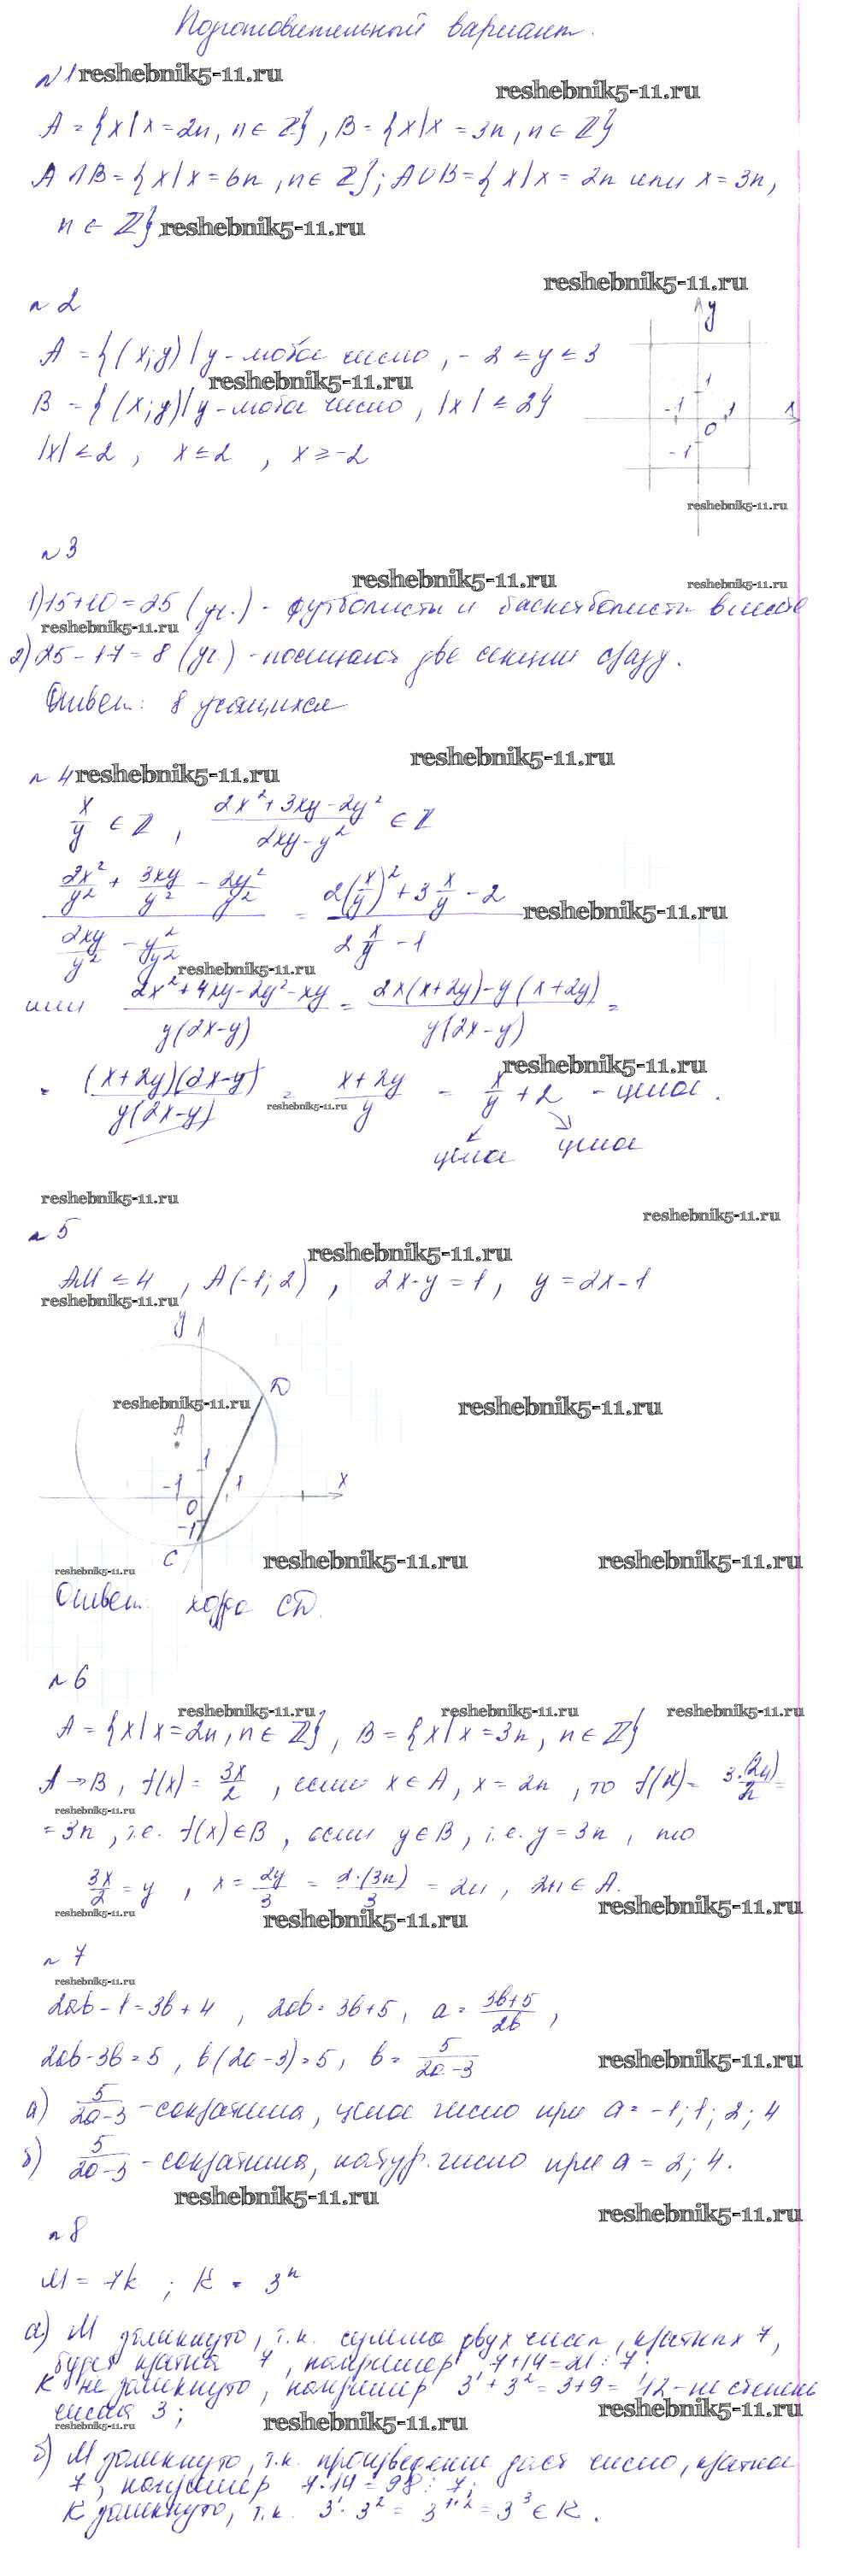 Подготовительный вариант.
№1 reshebnik5-11.ru
reshebnik5-11.ru
A = {x | x = 2n, n ∈ Z}, B = {x | x = 3n, n ∈ Z}
A ∩ B = {x | x = 6n, n ∈ Z}; A ∪ B = {x | x = 2n или x = 3n,
n ∈ Z} reshebnik5-11.ru
reshebnik5-11.ru
№2
y
A = {(x; y) | y - любое число, -2 ≤ y ≤ 3
reshebnik5-11.ru
B = {(x; y) | y - любое число, |x| ≤ 2}
1
-1 0 1 x
-1
|x| ≤ 2, x ≤ 2, x ≥ -2
reshebnik5-11.ru
№3
reshebnik5-11.ru
reshebnik5-11.ru
1) 15+10=25 (уч.) - футболисты и баскетболисты вместе
reshebnik5-11.ru
2) 25-17=8 (уч.) - посещают две секции сразу.
Ответ: 8 учащихся
reshebnik5-11.ru
№4 reshebnik5-11.ru
x/y ∈ Z, (2x²+3xy-2y²)/(2xy-y²) ∈ Z
(2x²/y² + 3xy/y² - 2y²/y²)/(2xy/y² - y²/y²) = (2(x/y)² + 3 x/y - 2)/(2 x/y - 1)
reshebnik5-11.ru
reshebnik5-11.ru
или (2x²+4xy-2y²-xy)/(y(2x-y)) = (2x(x+2y)-y(x+2y))/(y(2x-y)) =
reshebnik5-11.ru
= ((x+2y)(2x-y))/(y(2x-y)) = (x+2y)/y = x/y + 2 - целое.
reshebnik5-11.ru
целое целое
reshebnik5-11.ru
reshebnik5-11.ru
№5
reshebnik5-11.ru
AM ≤ 4, A(-1; 2), 2x-y=1, y=2x-1
reshebnik5-11.ru
y
D
reshebnik5-11.ru
reshebnik5-11.ru
A
1
-1 0 1 x
-1
C
reshebnik5-11.ru
reshebnik5-11.ru
reshebnik5-11.ru
Ответ: хорда CD.
№6
reshebnik5-11.ru
reshebnik5-11.ru
reshebnik5-11.ru
A = {x | x = 2n, n ∈ Z}, B = {x | x = 3n, n ∈ Z}
A → B, f(x) = 3x/2, если x ∈ A, x = 2n, то f(x) = 3·(2n)/2 =
reshebnik5-11.ru
= 3n, т.е. f(x) ∈ B, если y ∈ B, т.е. y = 3n, то
3x/2 = y, x = 2y/3 = 2·(3n)/3 = 2n, 2n ∈ A.
reshebnik5-11.ru
reshebnik5-11.ru
reshebnik5-11.ru
№7
reshebnik5-11.ru
2ab-1=3b+4, 2ab=3b+5, a = (3b+5)/2b,
2ab-3b=5, b(2a-3)=5, b = 5/(2a-3)
reshebnik5-11.ru
а) 5/(2a-3) - сократима, целое число при a = -1; 1; 2; 4
б) 5/(2a-3) - сократима, натур. число при a = 2; 4.
reshebnik5-11.ru
reshebnik5-11.ru
№8
M = 7k; K = 3ⁿ
а) M замкнуто, т.к. сумма двух чисел, кратных 7,
будет кратна 7, например 7+14=21⋮7.
K не замкнуто, например 3¹+3²=3+9=12 - не степень
reshebnik5-11.ru
числа 3;
reshebnik5-11.ru
reshebnik5-11.ru
б) M замкнуто, т.к. произведение даст число, кратное
7, например 7·14=98⋮7;
K замкнуто, т.к. 3¹·3² = 3¹⁺² = 3³ ∈ K.